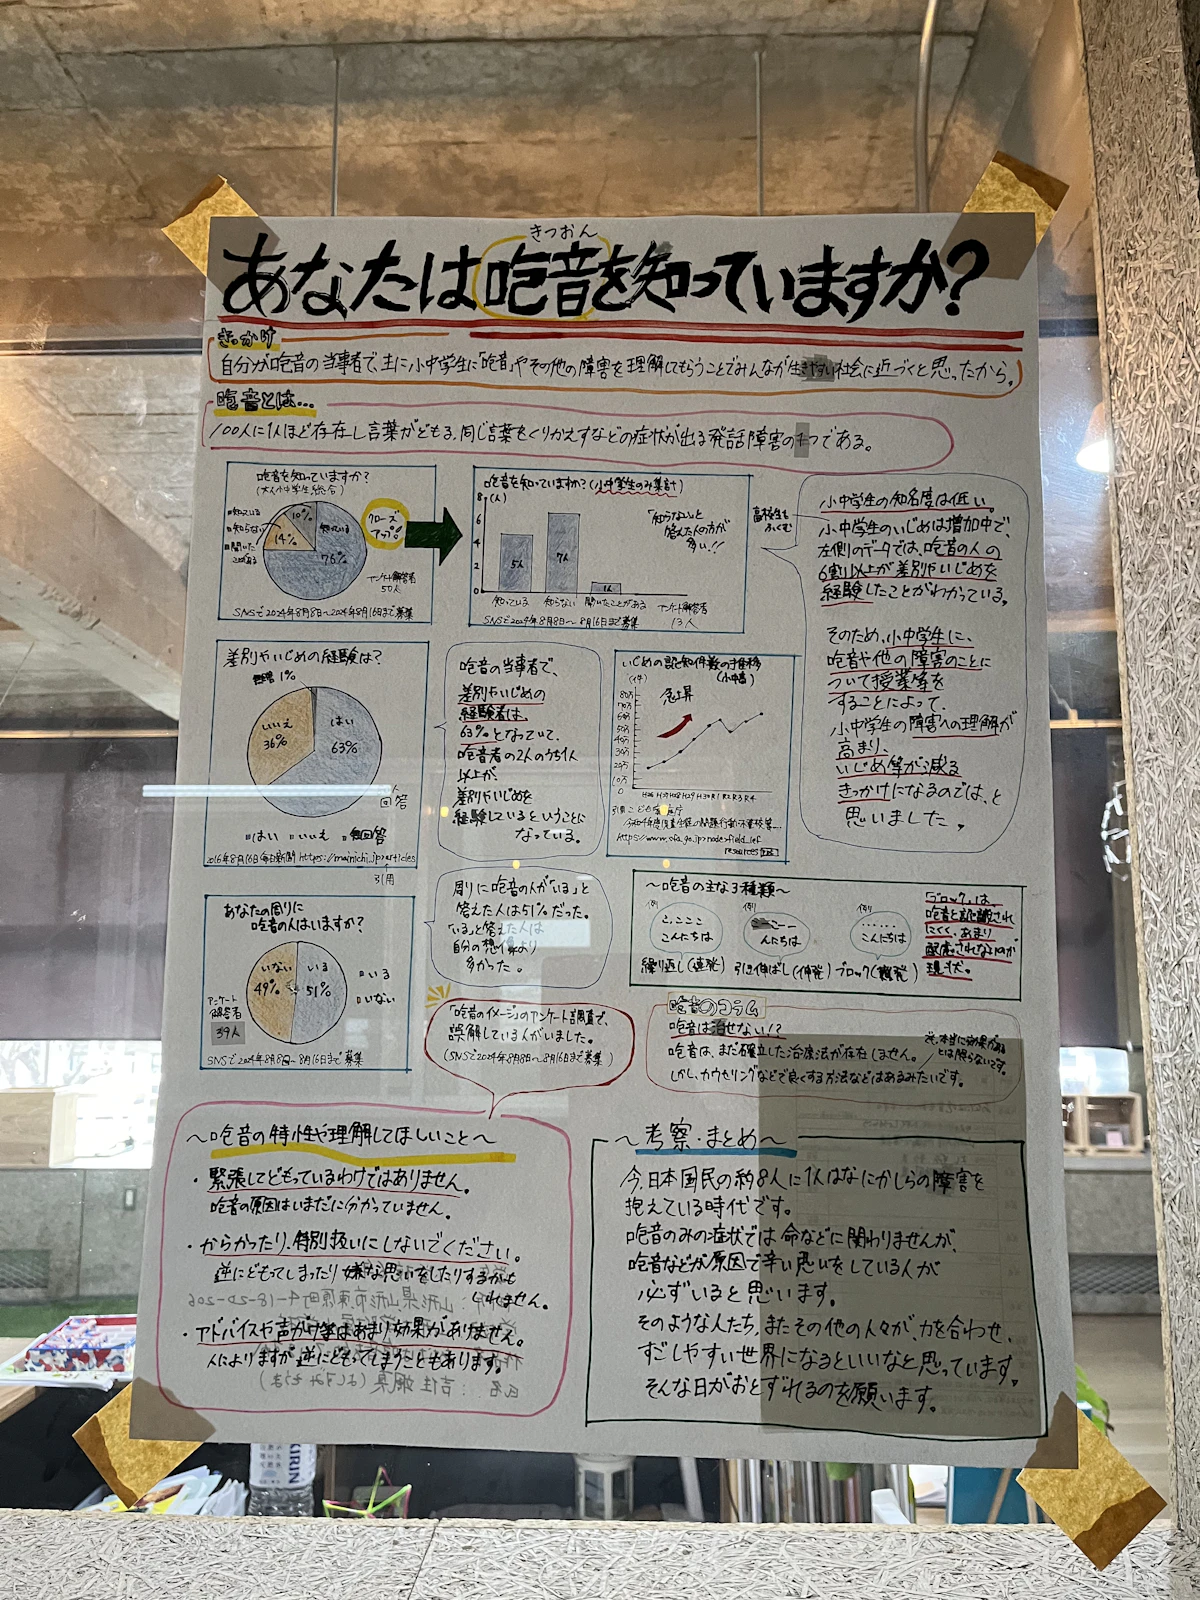 きつおん
あなたは吃音を知っていますか?
きっかけ
自分が吃音の当事者で、主に小中学生に「吃音」やその他の障害を理解してもらうことでみんなが生きやすい社会に近づくと思ったから。
吃音とは...
100人に1人ほど存在し言葉がどもる、同じ言葉をくりかえすなどの症状が出る発話障害の1つである。
吃音を知っていますか?
(大人小中学生総合)
知っている
知らない
聞いた
ことがある
10%
14%
知っている
76%
アンケート解答者
50人
SNSで2024年8月8日~2024年8月16日まで募集
クローズ
アップ!!
吃音を知っていますか?(小中学生のみ集計)
8(人)
6
4
2
0
5人
7人
1人
知っている 知らない 聞いたことがある
「知らない」と
答えた人の方が
多い!!
アンケート解答者
13人
SNSで2024年8月8日~8月16日まで募集
高校生も
ふくむ
小中学生の知名度は低い。
小中学生のいじめは増加中で、
左側のデータでは、吃音の人の
6割以上が差別やいじめを
経験したことがわかっている。
そのため、小中学生に、
吃音や他の障害のことに
ついて授業等を
することによって、
小中学生の障害への理解が
高まり、
いじめ等が減る
きっかけになるのでは、と
思いました。
差別やいじめの経験は?
無回答 1%
いいえ
36%
はい
63%
はい いいえ 無回答
2016年8月16日毎日新聞 https://mainichi.jp>articles
引用
吃音の当事者で、
差別やいじめの
経験者は、
63%となっていて、
吃音者の2人のうち1人
以上が、
差別やいじめを
経験しているということに
なっている。
いじめの認知件数の推移
(小中高)
(件)
80万
70万
60万
50万
40万
30万
20万
10万
0
急上昇
H26 H27 H28 H29 H30 R1 R2 R3 R4
引用こども家庭庁
https://www.cfa.go.jp>node>field_ref
resources
あなたの周りに
吃音の人はいますか?
いない
49%
いる
51%
いる
いない
アンケート
解答者
39人
SNSで2024年8月8日~8月16日まで募集
周りに吃音の人が「いる」と
答えた人は51%だった。
「いる」と答えた人は
自分の想像より
多かった。
~吃音の主な3種類~
例)
こ、こここ
こんにちは
繰り返し(連発)
例)
こーー
んにちは
引き伸ばし(伸発)
例)
......
こんにちは
ブロック(難発)
「ブロック」は、
吃音と認識され
にくく、あまり
配慮されないのが
現状。
「吃音のイメージ」のアンケート調査で、
誤解している人がいました。
(SNSで2024年8月8日~8月16日まで募集)
吃音のコラム
吃音は治せない!?
吃音は、まだ確立した治療法が存在しません。
しかし、カウセリングなどで良くする方法などはあるみたいです。
でも、本当に効果がある
とは限らないです。
~吃音の特性や理解してほしいこと~
・緊張してどもっているわけではありません。
吃音の原因はいまだに分かっていません。
・からかったり、特別扱いにしないでください。
逆にどもってしまったり嫌な思いをしたりするかも
しれません。
・アドバイスや声かけ等はあまり効果がありません。
人によりますが、逆にどもってしまうこともあります。
~考察・まとめ~
今、日本国民の約8人に1人はなにかしらの障害を
抱えている時代です。
吃音のみの症状では命などに関わりませんが、
吃音などが原因で辛い思いをしている人が
必ずいると思います。
そのような人たち、またその他の人々が、力を合わせ、
すごしやすい世界になるといいなと思っています。
そんな日がおとずれるのを願います。
KIRIN